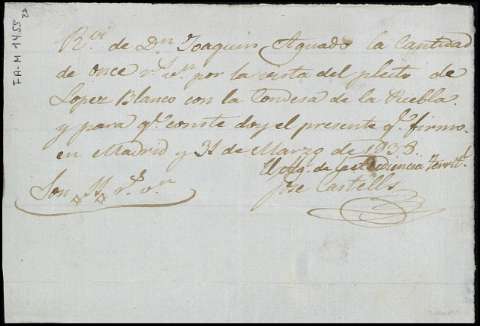 FA-M 1455
Rví. de Dn. Joaquin Aguado la Cantidad
de once rs. vn. por la vista del pleito de
Lopez Blanco con la Condesa de la Puebla.
y para qe. conste doy el presente qe. firmo
en Madrid y 31 de Marzo de 1838.
de la Audiencia Territl.
José Castells
Son 11 rs. vn